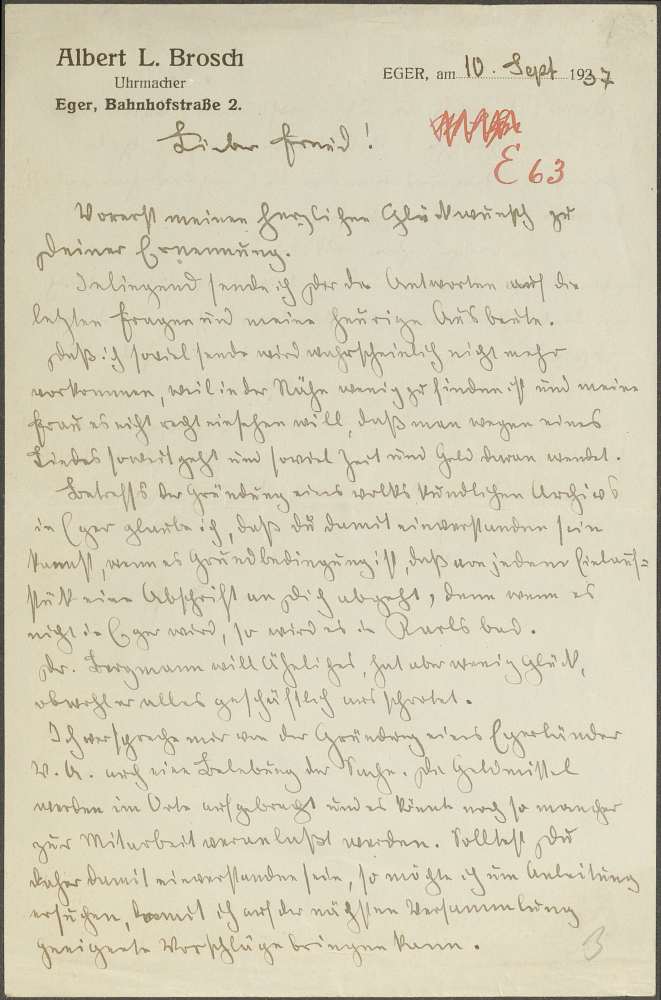 Albert L. Brosch
Uhrmacher
Eger, Bahnhofstraße 2.
EGER, am 10. Sept 1937
Lieber Freund!
E 63
Vorerst meinen herzlichen Glückwunsch zu
Deiner Ernennung.
Inliegend sende ich Dir die Antworten auf die
letzten Fragen und meine heurige Ausbeute.
Daß ich soviel sende wird wahrscheinlich nicht mehr
vorkommen, weil in der Nähe wenig zu finden ist und meine
Frau es nicht recht einsehen will, daß man wegen eines
Liedes soweit geht und soviel Zeit und Geld daran wendet.
Betreffs der Gründung eines volkskundlichen Archivs
in Eger glaube ich, daß du damit einverstanden sein
kannst, wenn es Grundbedingung ist, daß von jedem Einlauf=
stück eine Abschrift an Dich abgeht, denn wenn es
nicht in Eger wird, so wird es in Karlsbad.
Dr. Bergmann will ähnliches, hat aber wenig Glück,
obwohl er alles geschäftlich ausschrotet.
Ich verspreche mir von der Gründung eines Egerländer
V. A. auch eine Belebung der Sache. Die Geldmittel
werden im Orte aufgebracht und es könnte noch so mancher
zur Mitarbeit veranlaßt werden. Solltest Du
daher damit einverstanden sein, so möchte ich um Anleitung
ersuchen, damit ich auf der nächsten Versammlung
geeignete Vorschläge bringen kann.
3